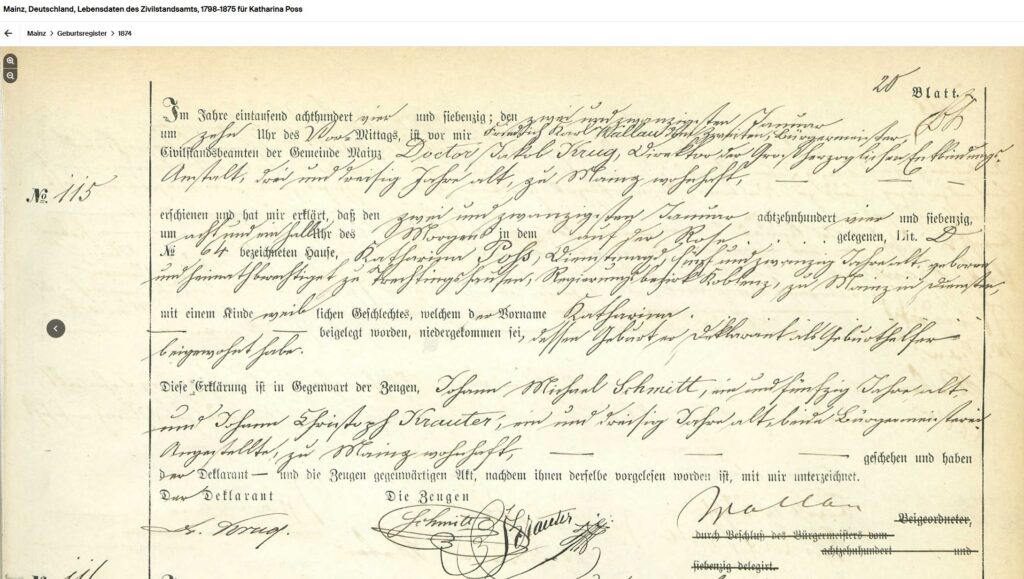 Mainz, Deutschland, Lebensdaten des Zivilstandsamts, 1798-1875 für Katharina Poss
Mainz > Geburtsregister > 1874
20 Blatt.
Im Jahre eintausend achthundert vier und siebenzig; den zwei und zwanzigsten Januar
um zehn Uhr des Vor-Mittags, ist vor mir Friedrich Karl Wallau Bürgermeister,
Civilstandsbeamten der Gemeinde Mainz Doctor Jakob Krug, Direktor der Großherzoglichen Entbindungs-
Anstalt, drei und dreisig Jahre alt, zu Mainz wohnhaft,
№ 115
erschienen und hat mir erklärt, daß den zwei und zwanzigsten Januar achtzehnhundert vier und siebenzig,
um acht und ein halb Uhr des Morgens in dem auf der Rose gelegenen, Lit. D
№ 64 bezeichneten Hause, Katharina Poß, Dienstmagd, fünf und zwanzig Jahre alt, geboren
und heimathberechtiget zu Trechtingshausen, Regierungsbezirk Koblenz, zu Mainz in Diensten,
mit einem Kinde weiblichen Geschlechtes, welchem der Vorname Katharina.
beigelegt worden, niedergekommen sei, dessen Geburt er Deklarant als Geburtshelfer
beigewohnt habe.
Diese Erklärung ist in Gegenwart der Zeugen, Johann Michael Schmitt, ein und fünfzig Jahre alt,
und Johann Christoph Krauter, ein und dreisig Jahre alt, beide Bürgermeisterei
Angestellte, zu Mainz wohnhaft,
geschehen und haben
der Deklarant — und die Zeugen gegenwärtigen Akt, nachdem ihnen derselbe vorgelesen worden ist, mit mir unterzeichnet.
Der Deklarant Die Zeugen
Dr. Krug. Schmitt Krauter Wallau
Beigeordneter,
durch Beschluß des Bürgermeisters vom
achtzehnhundert und
siebenzig delegirt.
№